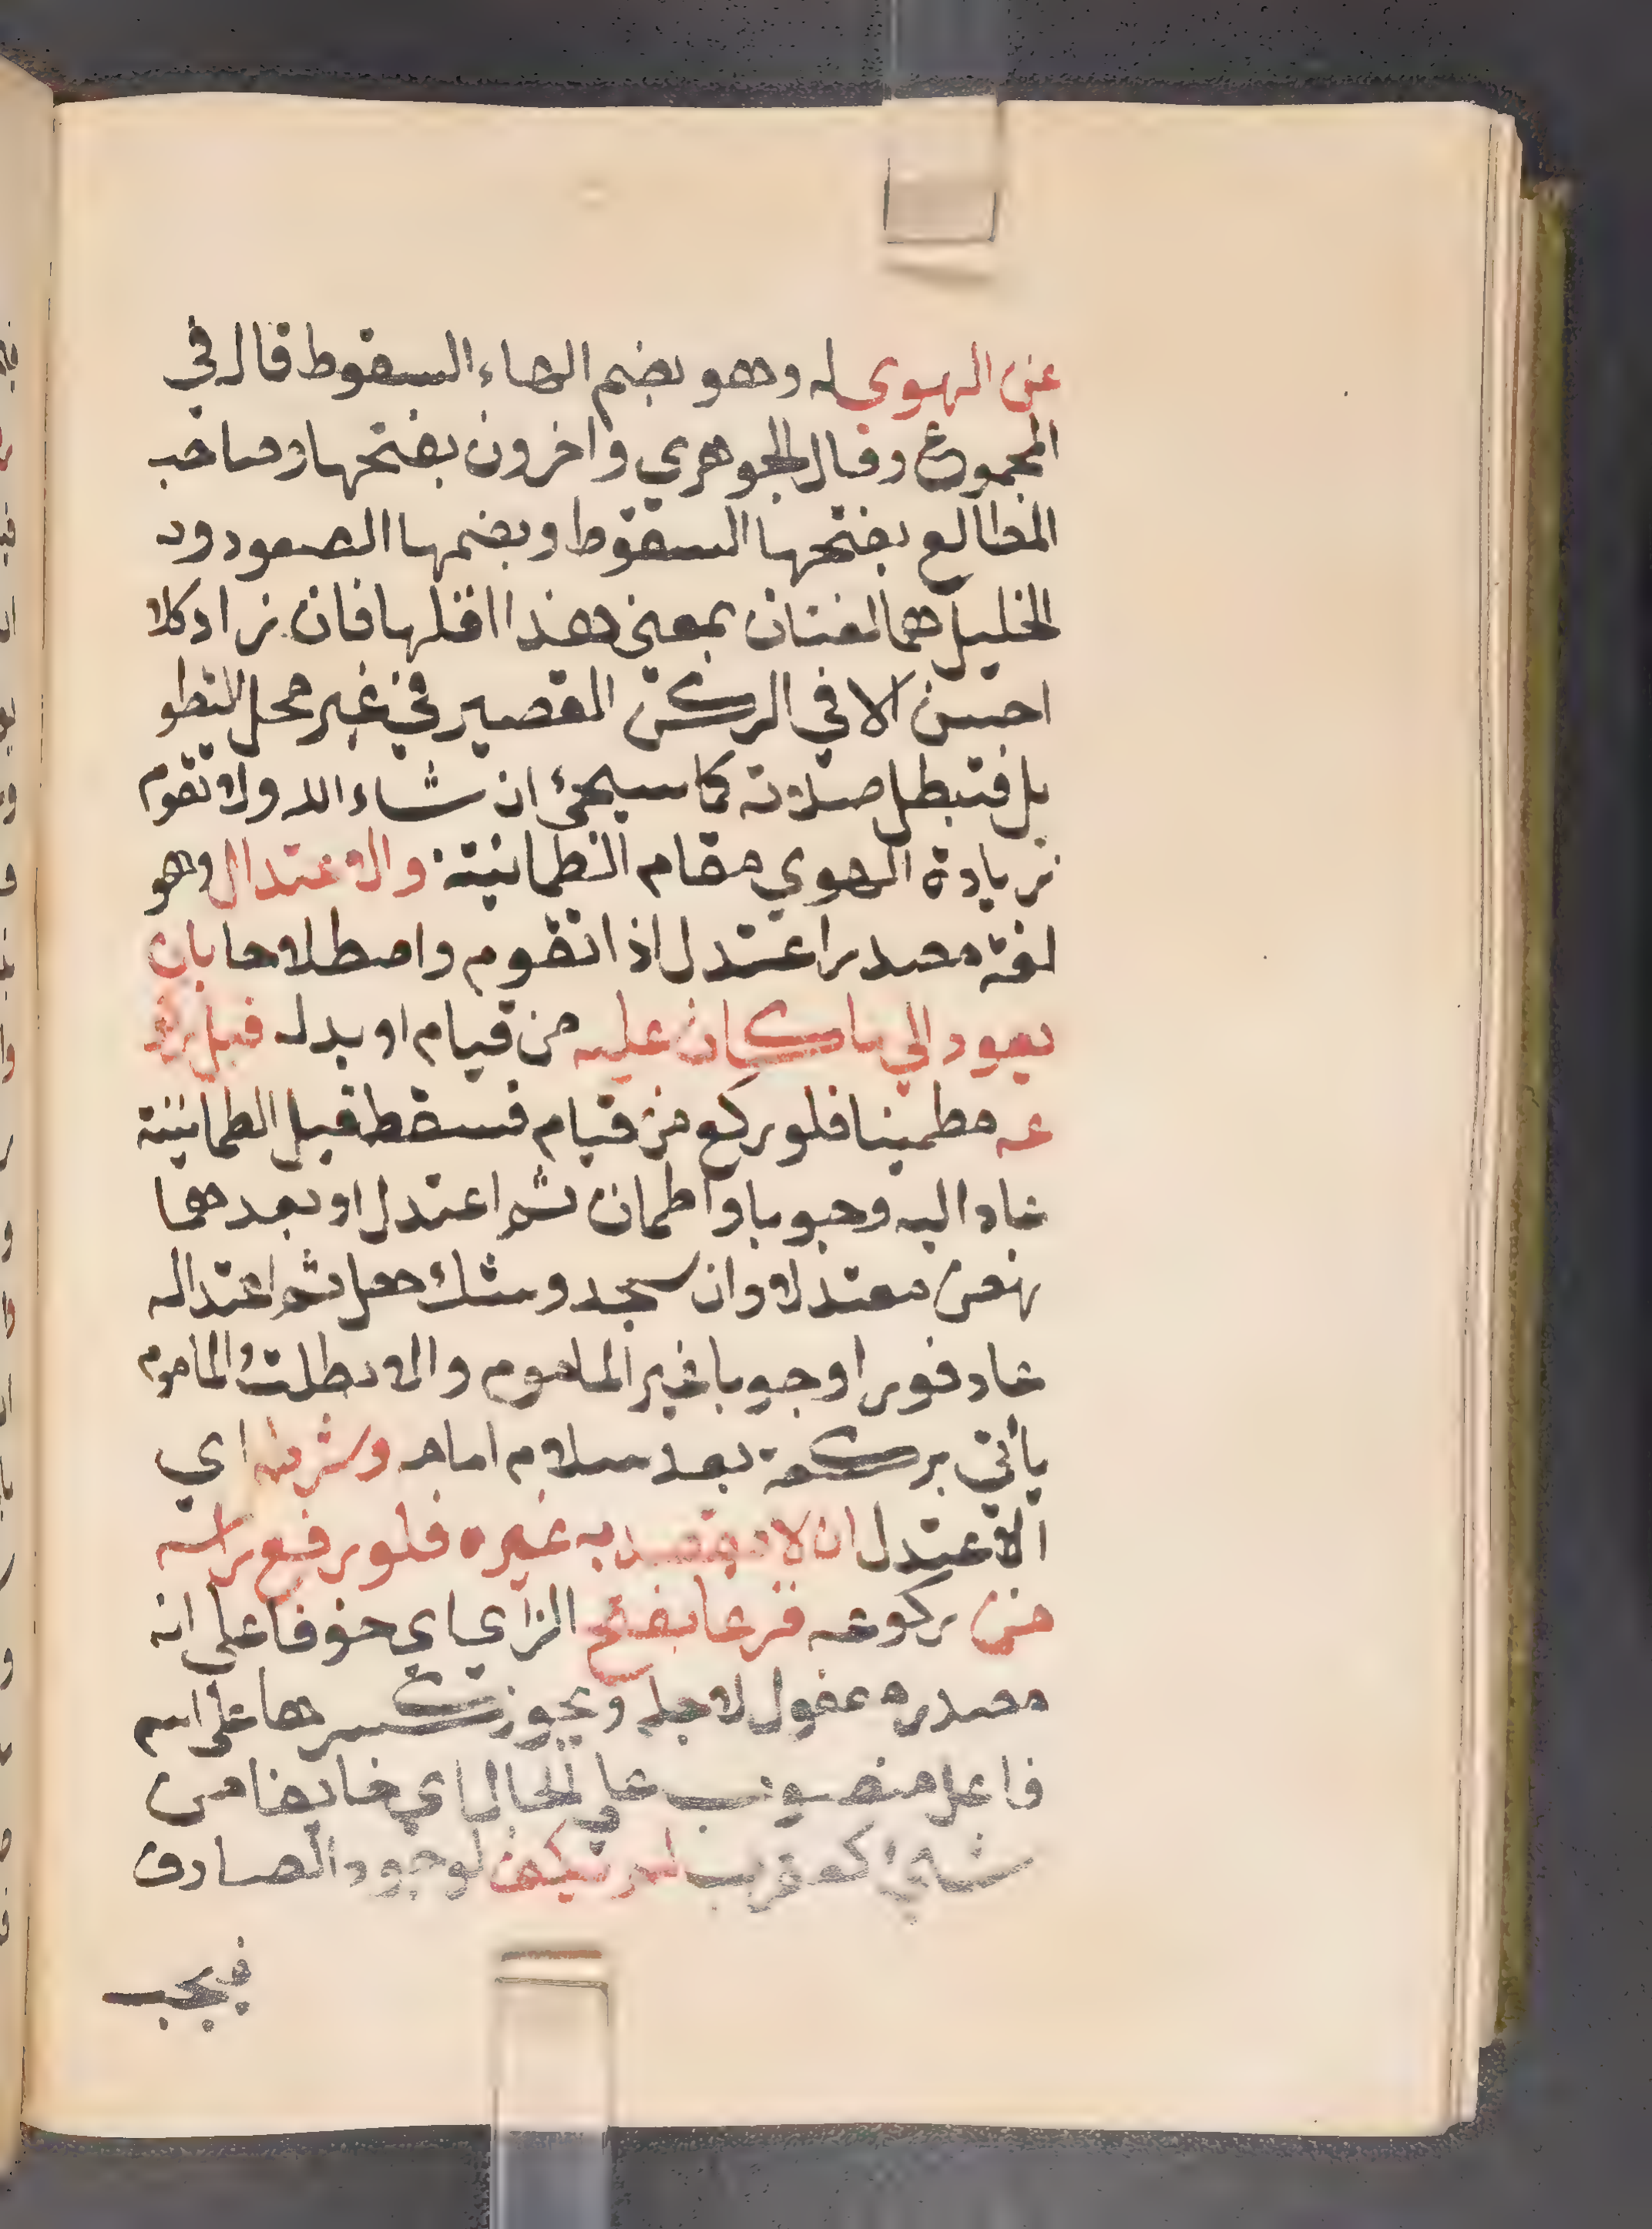 عن الهوي له وهو بضم الهاء السقوط قال في
المجموع وقال الجوهري واخرون بفتحها وصاحب
المطالع بفتحها السقوط وبضمها الصعود ود
الخليل هما لغتان بمعنى هذا اقلها فان زاد كلا
احسن الا في الركن القصير في غير محل التطو
بل فتبطل صلاته كما سيجئ ان شاء الله ولا تقوم
زيادة الهوي مقام الطمانينة والاعتدال وهو
لغة مصدر اعتدل اذا تقوم واصطلاحا بان
يعود الي ما كان عليه من قيام او بدله قبل ركو
عه مطمينا فلو ركع من قيام فسقط قبل الطمانينة
عاد اليه وجوبا واطمان ثم اعتدل او بعدها
نهض معتدلا وان سجد وشك هل تم اعتداله
عاد فورا وجوبا غير الماموم والا بطلت والماموم
يأتي بركعة بعد سلام امامه وشرطه اي
الاعتدل ان لا يقصد به غيره فلو رفع راسه
من ركوعه فزعا بفتح الزاي اي خوفا على انه
مصدر مفعول لاجله ويجوز كسرها على اسم
فاعل منصوب على الحال اي خايفا من
شيئ كعقرب لم يكف لوجود الصارف
فيجب